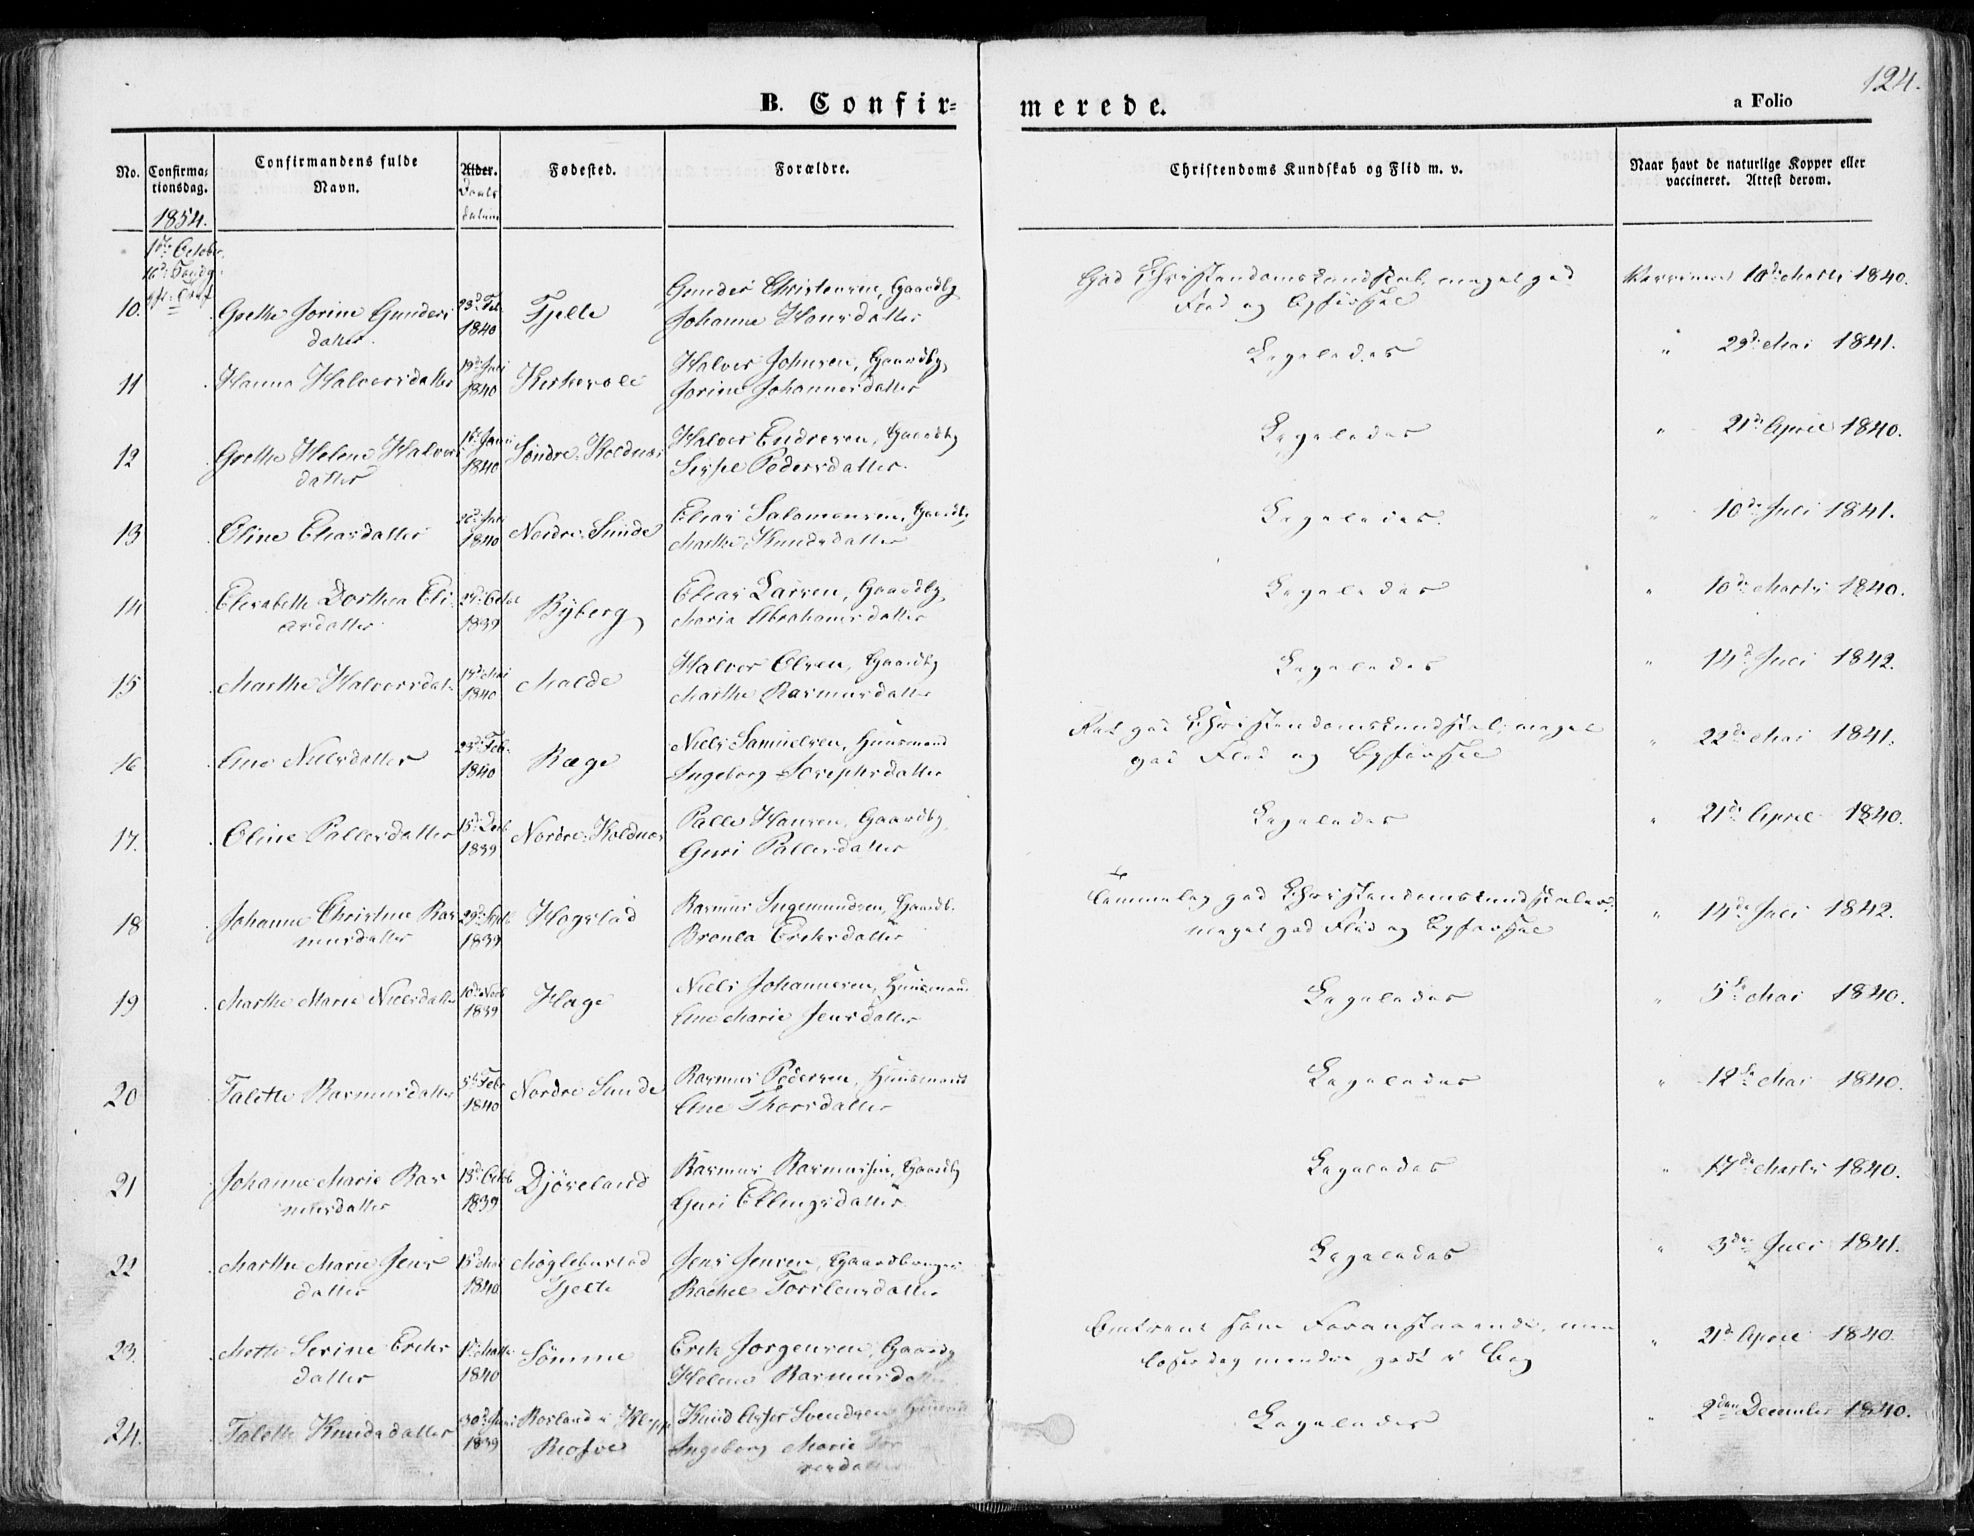 124.
B. Confir=
merede.
a Folio
No.
Confirma=
tionsdag.
Confirmandens fulde
Navn.
Alder.
Daabs
datum
Fødested.
Forældre.
Christendoms Kundskab og Flid m. v.
Naar havt de naturlige Kopper eller
vaccineret. Attest derom.
1854.
1ste October
16d. Søndg
10. Grethe Jorine Gunders
datter
23d. Feb.
1840
Tjelle
Gunder Christensen, Gaardbg.
Johanne Hansdatter
God Christendomskundskab, meget god
Flid og Opførsel
Vaccineret 10de Marts 1840.
11 Hanna Halvorsdatter
19de Juli
1840
Halvor Johnsen, Gaardbg.
Jorine Johannesdatter
Ligeledes
" 29d. Mai 1841.
12 Grethe Helene Halvors
datter
1840
Søndre-Koldnæs
Halvor Endresen, Gaardbg
Pedersdatter.
Ligeledes
" 21de April 1840.
13 Oline Eliasdatter
1840
Nordre-Sunde
Elias Salomonsen, Gaardbg
Marthe Knudsdatter
Ligeledes.
" 10de Juli 1841.
14 Elisabeth Dorthea Eli
asdatter
1839
Byberg
Elias Larsen, Gaardbg.
Maria Abrahamsdatter
Ligeledes
" 10de Marts 1840.
15 Marthe Halvorsdat.
17d. Mai
1840
Malde
Halvor Olsen, Gaardbg
Marthe Rasmusdatter
Ligeledes
" 14d. Juli 1842.
16 Ane Nielsdatter
23d. Feb.
1840
Ræge
Niels Samuelsen, Huusmand
Ingeborg Josephsdatter
Ret god Christendomskundskab, meget
god Flid og Opførsel
" 22de Mai 1841.
17. Oline Pallesdatter
1839
Nordre-Koldnæs
Palle Hansen, Gaardbg.
Guri Pallesdatter
Ligeledes
" 21de April 1840.
18 Johanne Christine Ras
musdatter
1839
Hogstad
Rasmus Ingemundsen, Gaardb.
Bronla Eriksdatter
Temmelig god Christendomskundskab,
meget god Flid og Opførsel
" 14de Juli 1842.
19 Marthe Marie Nielsdatter
10de Novb
1839
Hage
Niels Johannesen, Huusmand
Ane Marie Jensdatter
Ligeledes
" 5te Mai 1840.
20 Talette Rasmusdatter
5te Febr
1840
Nordre Sunde
Rasmus Pedersen, Huusmand
Ane Thorsdatter
Ligeledes
" 12te Mai 1840.
21 Johanne Marie Ras
musdatter
15d. Octb
1839
Djøseland
Rasmus Rasmussen, Gaardbg
Guri Ellingsdatter
Ligeledes
" 17de Marts 1840.
22 Marthe Marie Jens
datter
15d. Mai
1840
Møglebustad
Tjelte
Jens Jensen, Gaardbruger
Rachel Torstensdatter
Ligeledes
" 3die Juli 1841.
23. Mette Serine Eriks
datter
1840
Sömme
Erik Jorgensen, Gaardbg
Helene Rasmusdatter
Omtrent som Foranstaaende, men
læser dog mindre godt i Bog
" 21d. April 1840.
24. Talette Knudsdatter
1839
Rosland i Klepp
Knud Svendsen
Ingeborg Marie Tor
resdatter
Ligeledes
" 2den December 1840.